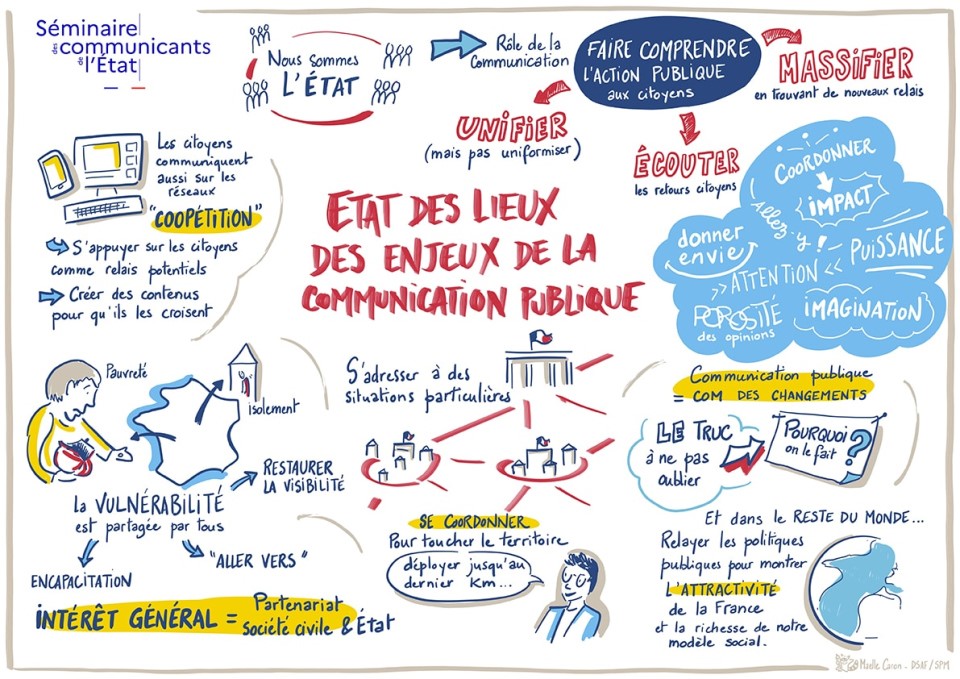 Séminaire
des communicants
de l'État
Nous sommes
L'ÉTAT
Rôle de la
Communication
FAIRE COMPRENDRE
L'ACTION PUBLIQUE
aux citoyens
MASSIFIER
en trouvant de nouveaux relais
UNIFIER
(mais pas uniformiser)
ÉCOUTER
les retours citoyens
Les citoyens
communiquent
aussi sur les
réseaux
"COOPÉTITION"
S'appuyer sur les citoyens
comme relais potentiels
Créer des contenus
pour qu'ils les croisent
ETAT DES LIEUX
DES ENJEUX DE LA
COMMUNICATION PUBLIQUE
COORDONNER
IMPACT
Allez-y!
donner
envie
PUISSANCE
>> ATTENTION <<
POROSITÉ
des opinions
IMAGINATION
Pauvreté
isolement
La VULNÉRABILITÉ
est partagée par tous
RESTAURER
LA VISIBILITÉ
"ALLER VERS"
ENCAPACITATION
INTÉRÊT GÉNÉRAL = Partenariat
société civile & État
S'adresser à des
situations particulières
SE COORDONNER
Pour toucher le territoire
déployer jusqu'au
dernier km...
Communication publique
= COM DES CHANGEMENTS
LE TRUC
à ne pas
oublier
POURQUOI
on le fait
?
Et dans le RESTE DU MONDE...
Relayer les politiques
publiques pour montrer
L'ATTRACTIVITÉ
de la France
et la richesse de notre
modèle social.
Maëlle Caron - DSAF/SPM